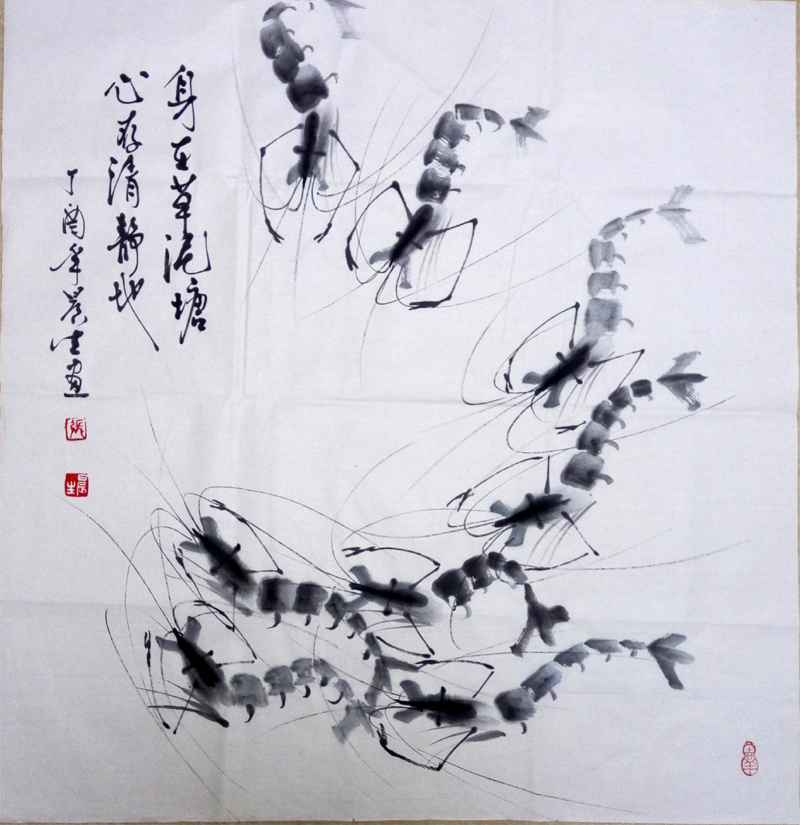 身在草泥塘
心存清静地
丁酉年晨生画
張
晨生